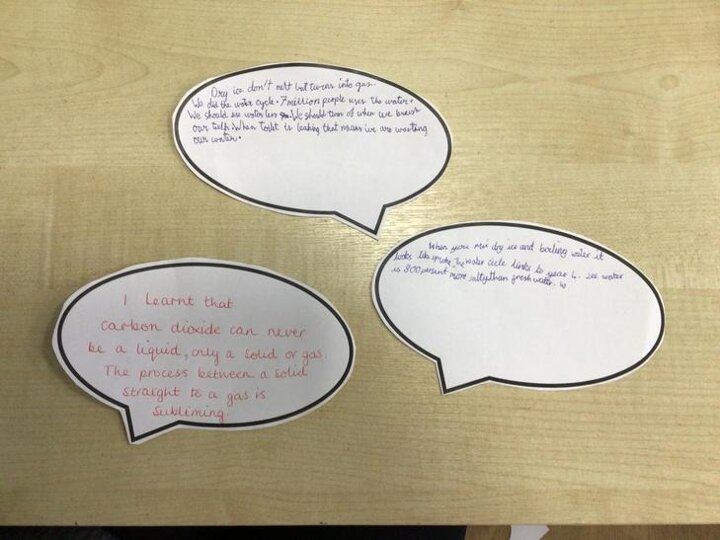 Dry ice don't melt but turns into gas.
We did the water cycle. 7 million people uses the water.
We should use water less We should turn of when we brush
our teeth. When toilet is leaking that means we are wasting
our water.
When you mix dry ice and boiling water it
looks like smoke. The water cicle links to year 4. see water
is 800 persent more salty than fresh water.
I learnt that
carbon dioxide can never
be a liquid, only a solid or gas.
The process between a solid
straight to a gas is
subliming.